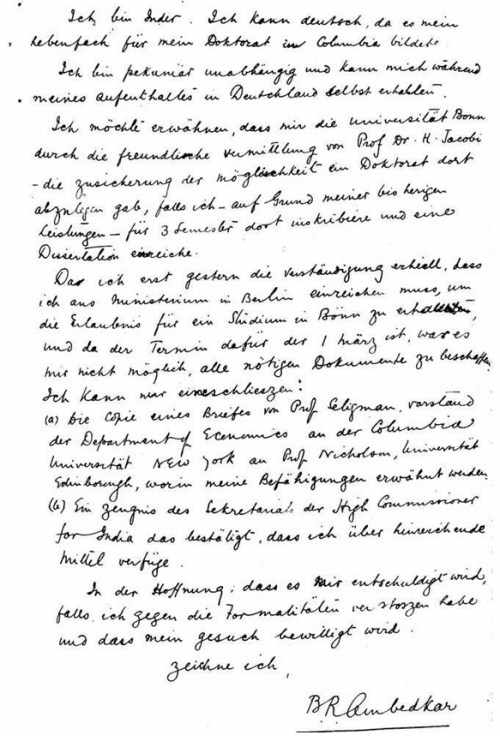 Ich bin Inder. Ich kann deutsch, da es mein
Nebenfach für mein Doktorat in Columbia bildete.
Ich bin pekuniär unabhängig und kann mich während
meines Aufenthaltes in Deutschland selbst erhalten.
Ich möchte erwähnen, dass mir die Universität Bonn
durch die freundliche Vermittlung von Prof Dr. H. Jacobi
- die Zusicherung der möglischkeit ein Doktorat dort
abzulegen gab, falls ich - auf Grund meiner bisherigen
Leistungen - für 3 Semester dort inskribiere und eine
Dissertation einreiche.
Da ich erst gestern die Verständigung erhielt, dass
ich ans Ministerium in Berlin einreichen muss, um
die Erlaubnis für ein Studium in Bonn zu erhalten,
und da der Termin dafür der 1 März ist, war es
mir nicht möglich, alle nötigen Dokumente zu beschaffen.
Ich kann nur einschlieszen:
(a) Die Copie eines Breifes von Prof. Seligman, vorstand
der Department of Economics an der Columbia
Universität New York an Prof Nicholson, Universität
Edinborough, worin meine Befähigungen erwähnt werden
(b) Ein Zeugnis des Sekretariats der High Commissioner
for India das bestätigt, dass ich über hinreichende
Mittel verfüge.
In der Hoffnung, dass es mir entschuldigt wird,
falls ich gegen die Formalitäten verstoszen habe
und dass mein gesuch bewilligt wird.
zeichne ich,
B.R. Ambedkar